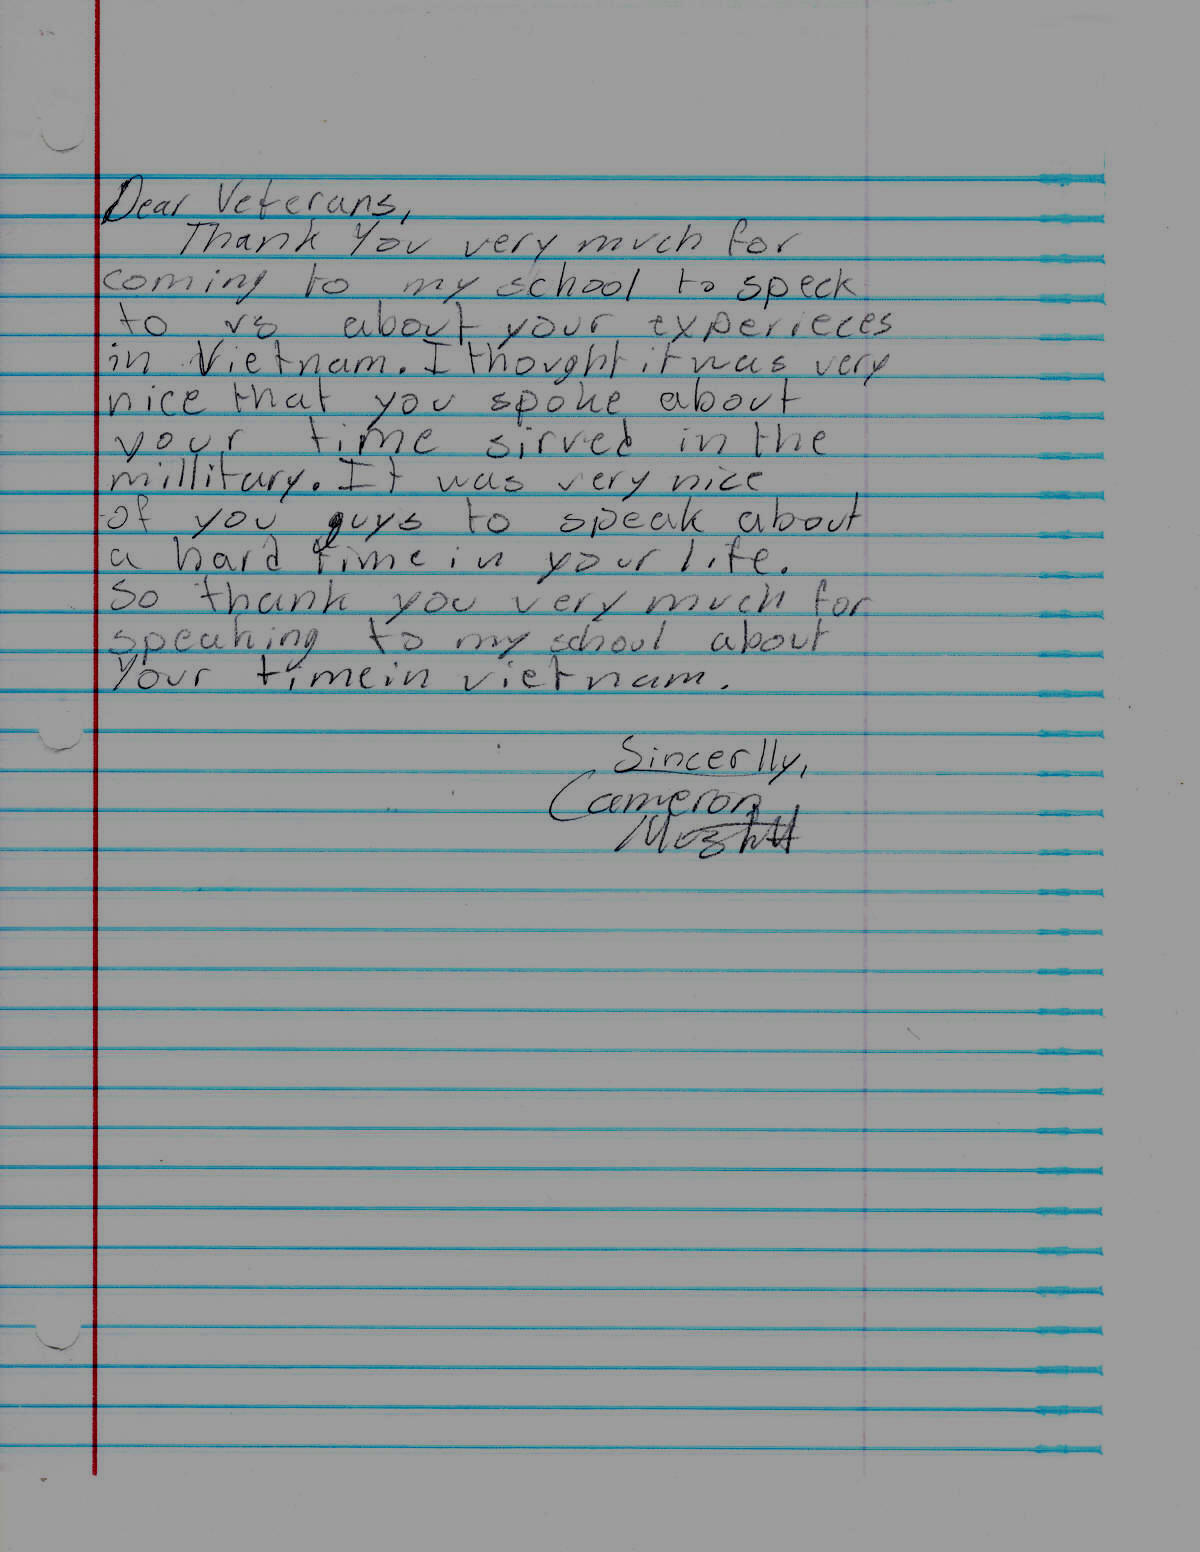 Dear Veterans,
Thank You very much for
coming to my school to speck
to us about your experieces
in Vietnam. I thought it was very
nice that you spoke about
your time sirved in the
millitary. It was very nice
of you guys to speak about
a hard time in your life.
So thank you very much for
speaking to my school about
Your time in vietnam.
Sincerlly,
Cameron